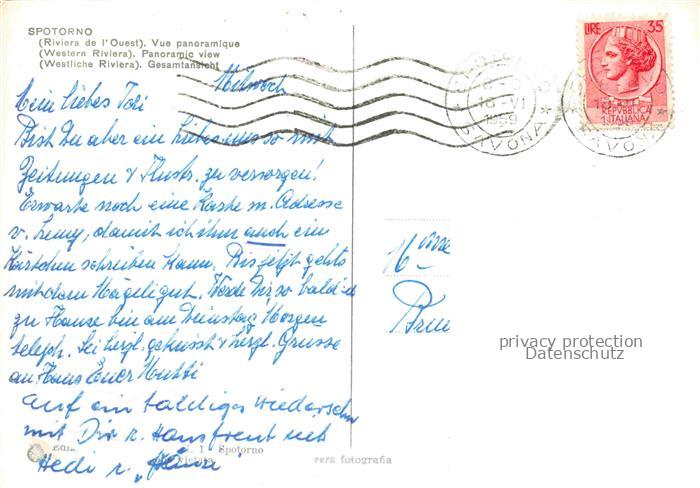 SPOTORNO
(Riviera de l'Ouest). Vue panoramique
(Western Riviera). Panoramic view
(Westliche Riviera). Gesamtansicht
Mittwoch
Mein liebes
Bist Du aber ein liebes uns so mit
Zeitungen & Illustr. zu versorgen!
Erwarte noch eine Karte m. Adresse
v. Lemy, damit ich ihm auch ein
Kärtchen schreiben kann. Bis jetzt gehts
mit dem Mägeli gut. Werde Dir so bald ich
zu Hause bin am Dienstag Morgen
teleph. Sei herzl. geküsst & herzl. Grüsse
an Hans Euer Mutti
auf ein baldiges Wiedersehn
mit Dir u. Hans freut sich
Hedi u.
1 Spotorno
vera fotografia
LIRE 35
REPUBBLICA
ITALIANA
16-VI
1959
SAVONA
privacy protection
Datenschutz